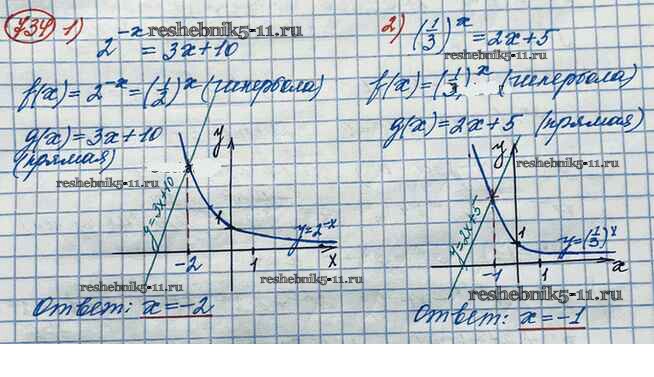 734 1)
2^{-x} = 3x+10
f(x) = 2^{-x} = (1/2)^x (гипербола)
g(x) = 3x+10
(прямая)
y
y=3x+10
1
y=2^{-x}
-2
1
x
Ответ: x=-2
2) (1/3)^x = 2x+5
f(x) = (1/3)^x (гипербола)
g(x) = 2x+5 (прямая)
y
y=2x+5
1
y=(1/3)^x
-1
1
x
Ответ: x=-1
reshebnik5-11.ru
reshebnik5-11.ru
reshebnik5-11.ru
reshebnik5-11.ru
reshebnik5-11.ru
reshebnik5-11.ru
reshebnik5-11.ru
reshebnik5-11.ru